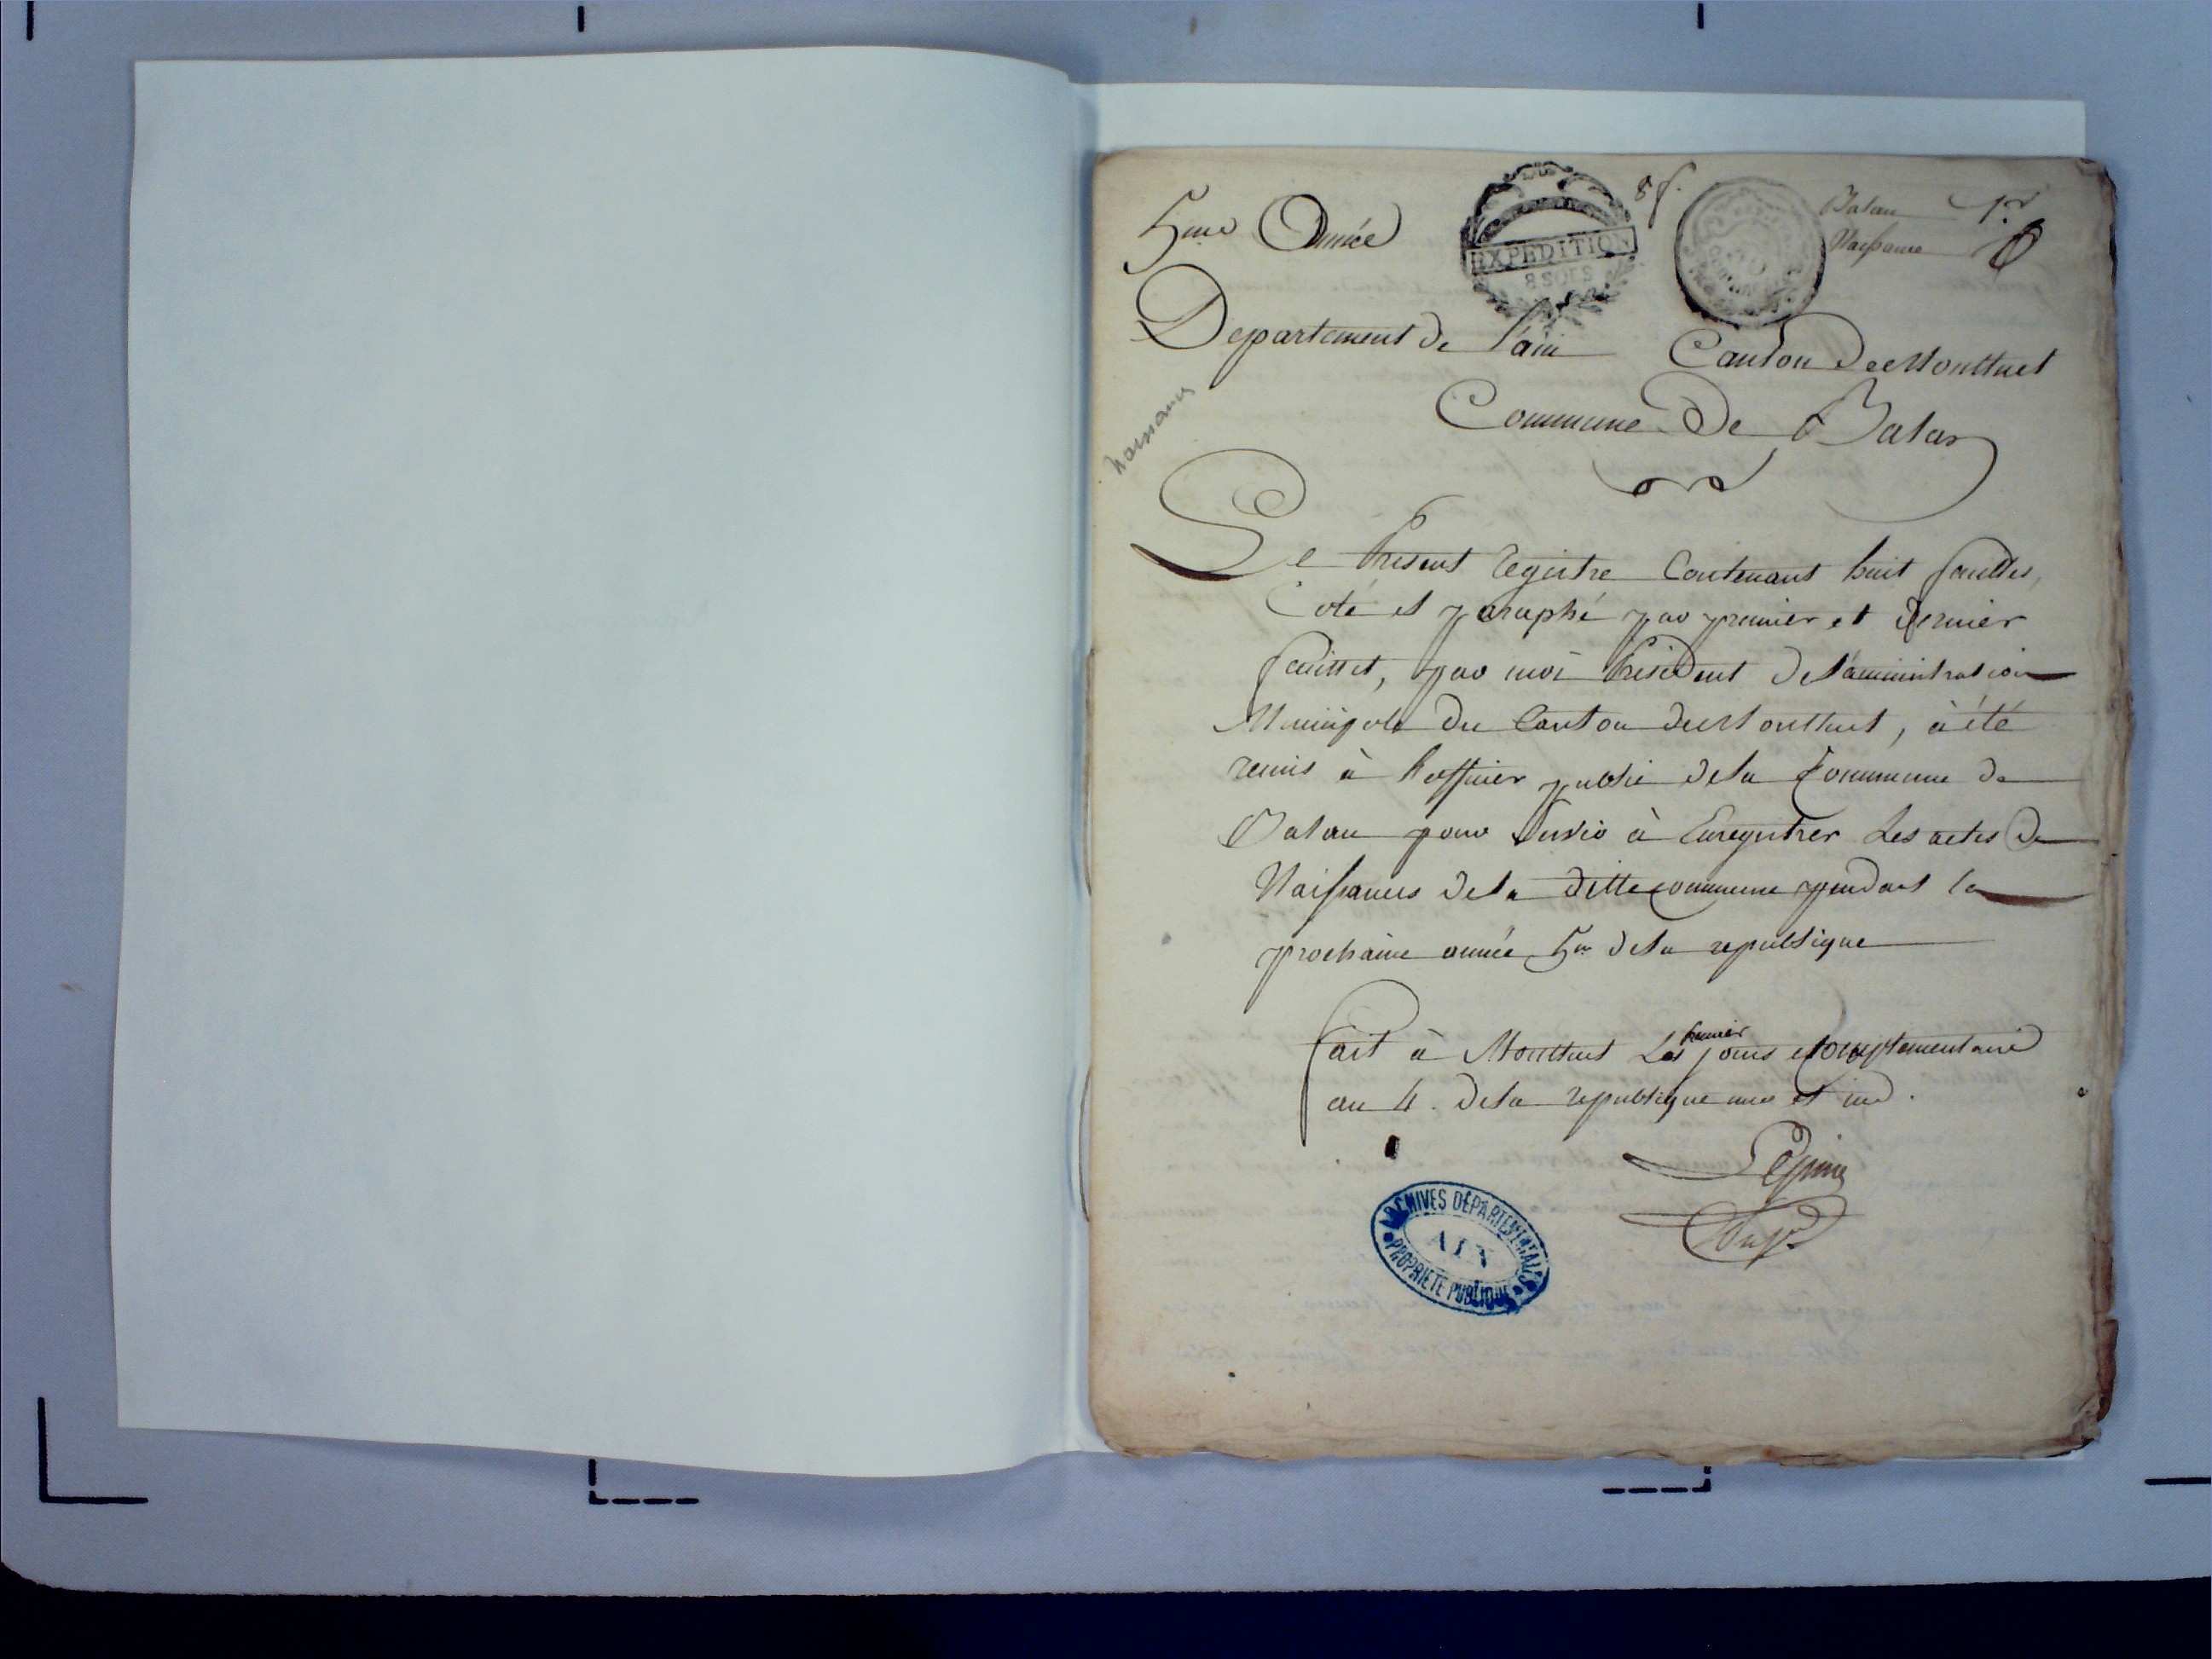 5me Année
EXPEDITION
8 SOLS
8 f.
Balan 1.r
Naissance
Departement de l'ain Canton de Montluel
naissances
Commune De Balan
Le Present registre Contenant huit feuilles,
Coté et paraphé par premier et dernier
feuillet, par moi President de l'aministration
Municipale du Canton de Montluel, à été
remis à l'officier public de la Commune de
Balan pour servir à Enregistrer Les actes de
Naissances de la ditte commune pendant la
prochaine année 5me de la republique
fait à Montluel Les premier jours Complementaire
an 4. de la republique une et ind.
Lespine
ARCHIVES DÉPARTEMENTALES
AIN
PROPRIÉTÉ PUBLIQUE